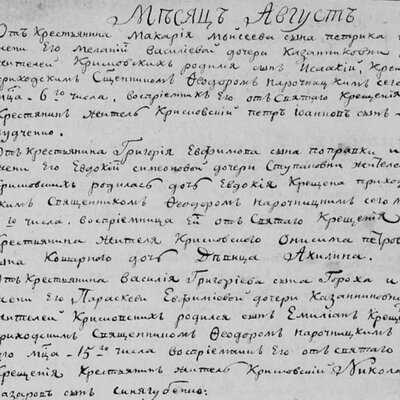 Мѣсяцъ Августъ
Отъ Крестьянина Макарія Моисеева сына петрика и
жени Его Меланіи Василіевой дочери Казаптиковни
жителей Кришовскихъ родился сынъ Исаакій, Крещ
приходскимъ Священникомъ Ѳеодоромъ нарочницкимъ сего
мца - 6го числа, воспріемникъ Его отъ Святаго Крещенія
Крестянинъ житель Крисовскій петръ Іоанновъ сынъ
Отъ Крестьянина Григорія Евфимова сына поправки и
жени Его Евдокіи симеоновой дочери Ступаковни жителе
Крисовскихъ родилась дочь Евдокія Крещена прихо
скимъ Священникомъ Ѳеодоромъ нарочницкимъ сего м
го числа, воспріемница Ей отъ Святаго Крещенія
Крестьянина жителя Крисовского Онисима петро
сына Кошарного дочь Дѣвица Акилина.
Отъ Крестьянина Василія Григоріева сына Гороха и
жени Его Параскеви Евфиміевой дочери Казаптиковни
жителей Крисовскихъ родился сынъ Емиліанъ Креще
приходскимъ Священникомъ Ѳеодоромъ нарочницкимъ
его мца - 15го числа воспріемникъ Его отъ святаго
Крещенія Крестянинъ житель Крисовскій Никола
Назаровъ сынъ синягубенко: